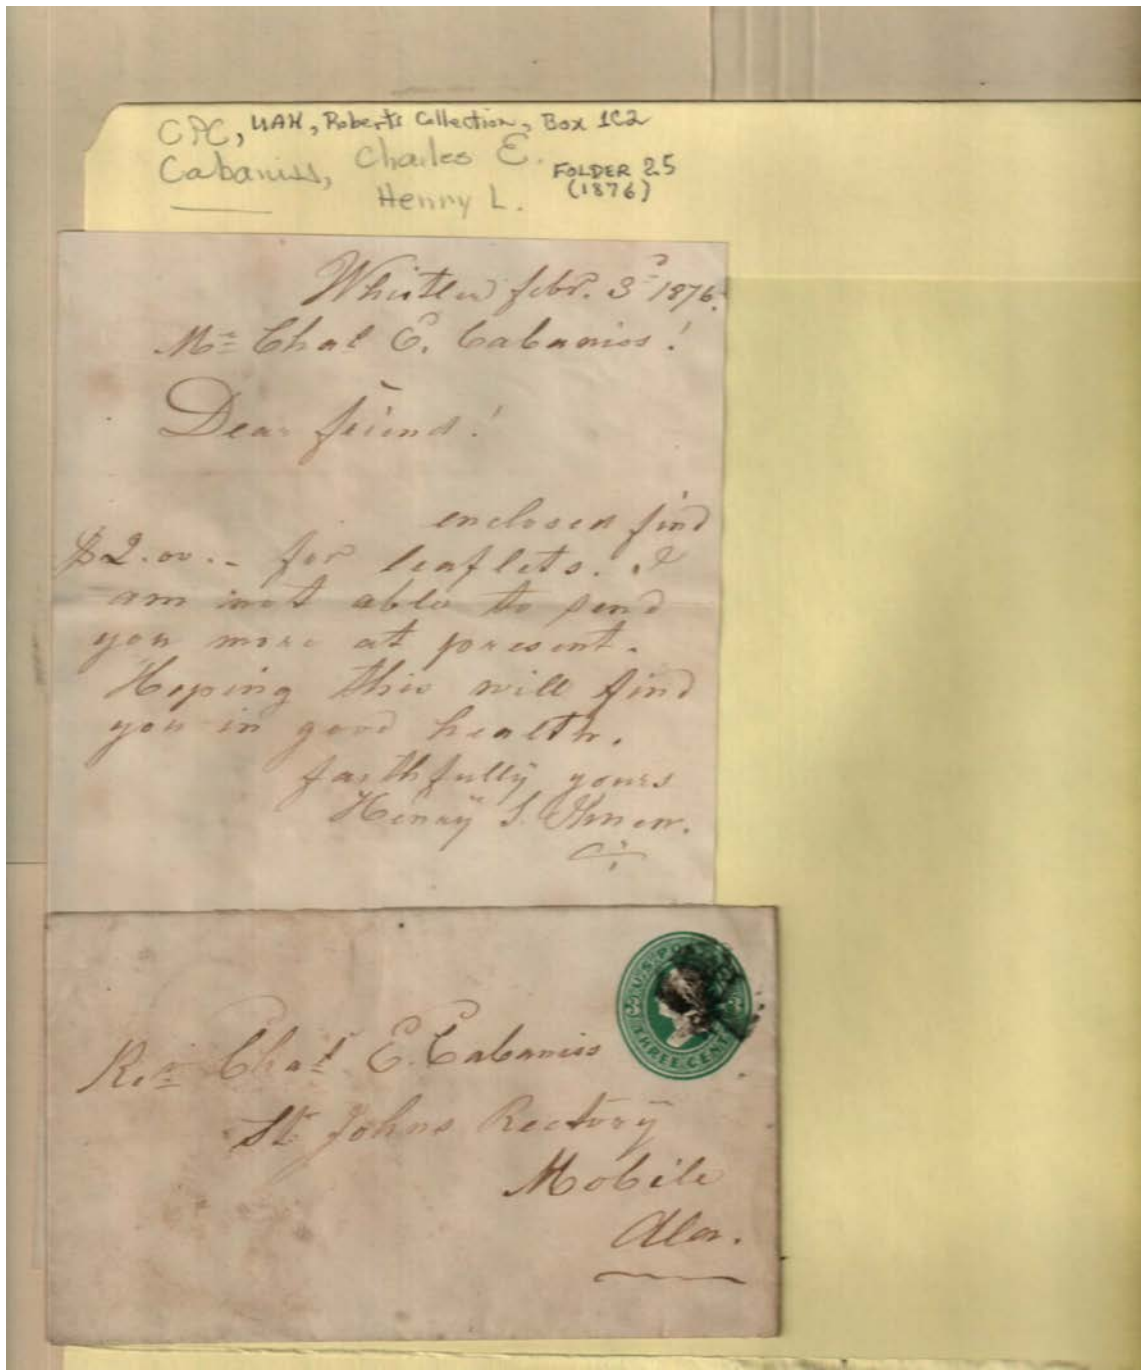 CPC, UAH, Roberts Collection, Box 1C2
Cabaniss, Charles E. FOLDER 25
Henry L. (1876)
Whistler febr. 3 1876.
Mr Chas E. Cabaniss!
Dear friend!
enclosed find
$2.00.- for leaflets. I
am not able to send
you more at present.
Hoping this will find
you in good health.
faithfully yours
Henry S.
U.S. POSTAGE
THREE CENTS
Rev. Chas E. Cabaniss
St. Johns Rectory
Mobile
Ala.